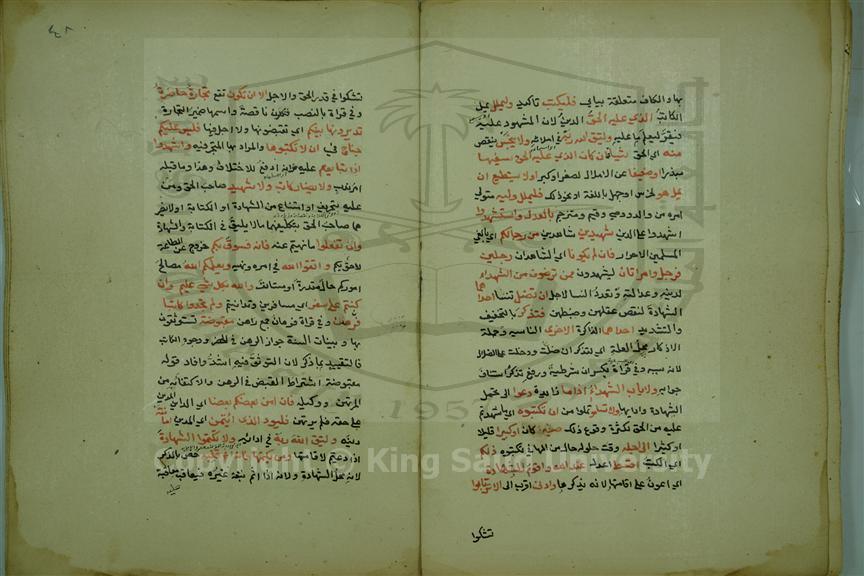 بها والكاف متعلقة بياب فليكتب تاكيد وليملل يمل
الكاتب الذي عليه الحق الدين لان المشهود عليه
فيقر ليعلم ما عليه وليتق الله ربه في املائه ولا يبخس ينقص
منه اي الحق شيئا فان كان الذي عليه الحق سفيها
مبذرا اوضعيفا عن الاملاء لصغر او كبر اولا يستطيع ان
يمل هو لخرس اوجهل باللغة او نحو ذلك فليملل وليه متولي
امره من والد ووصي وقيم ومترجم بالعدل واستشهدوا
اشهدوا على الدين شهيدين شاهدين من رجالكم اي بالغي
المسلمين الاحرار فان لم يكونا اي الشاهدان رجلين
فرجل وامراتان يشهدون ممن ترضون من الشهداء
لدينه وعدالته وتعدد النسا لاجل ان تضل تنسا احداهما
الشهادة لنقص عقلهن وضبطهن فتذكر بالتخفيف
والتشديد احداهما الذاكرة الاخرى الناسية وجملة
الاذكار محل العلة اي لتذكر ان ضلت ودخلت على الضلال
لانه سببه وفي قراة بكسر ان شرطية ورفع تذكر استئناف
جوابه ولا ياب الشهداء اذا ما زايدة دعوا الى تحمل
الشهادة وادائها ولا تساموا تملوا من ان تكتبوه اي ما شهدتم
عليه من الحق لكثرة وقوع ذلك صغيرا كان او كبيرا قليلا
اوكثيرا الى اجله وقت حلوله حال من الهاء في تكتبوه ذلكم
اي الكتب اقسط اعدل عند الله واقوم للشهادة
اي اعون على اقامتها لانه يذكرها وادنى اقرب الى الا ترتابوا
تشكوا
تشكوا في قدر الحق والاجل الا ان تكون تقع تجارة حاضرة
وفي قراة بالنصب فتكون ناقصة واسمها ضمير التجارة
تديرونها بينكم اي تقبضونها ولا اجل فيها فليس عليكم
جناح في ان لا تكتبوها والمراد بها المتجر فيه واشهدوا
اذا تبايعتم عليه فانه ادفع للاختلاف وهذا وما قبله
امر ندب ولا يضار كاتب ولا شهيد صاحب الحق ومن
عليه بتحريف او امتناع من الشهادة او الكتابة اولا يضر
هما صاحب الحق بتكليفهما ما لا يليق في الكتابة والشهادة
وان تفعلوا ما نهيتم عنه فانه فسوق بكم خروج عن الطاعة
لاحق بكم واتقوا الله في امره ونهيه ويعلمكم الله مصالح
اموركم حال مقدرة او مستانف والله بكل شي عليم وان
كنتم على سفر اي مسافرين وتداينتم ولم تجدوا كاتبا
فرهن وفي قراة فرهان جمع رهن مقبوضة تستوثقون
بها وبينت السنة جواز الرهن في الحضر ووجود الكاتب
فالتقييد بما ذكر لان التوثق فيه اشد وافاد قوله
مقبوضة اشتراط القبض في الرهن والاكتفاء به من
المرتهن ووكيله فان امن بعضكم بعضا اي الداين المدين
على حقه فلم يرتهن فليود الذي اؤتمن اي المدين امانته
دينه وليتق الله ربه في ادائه ولا تكتموا الشهادة
اذا دعيتم لاقامتها ومن يكتمها فانه اثم قلبه خص بالذكر
لانه محل الشهادة ولانه اذا اثم تبعه غيره فيعاقب معاقبة